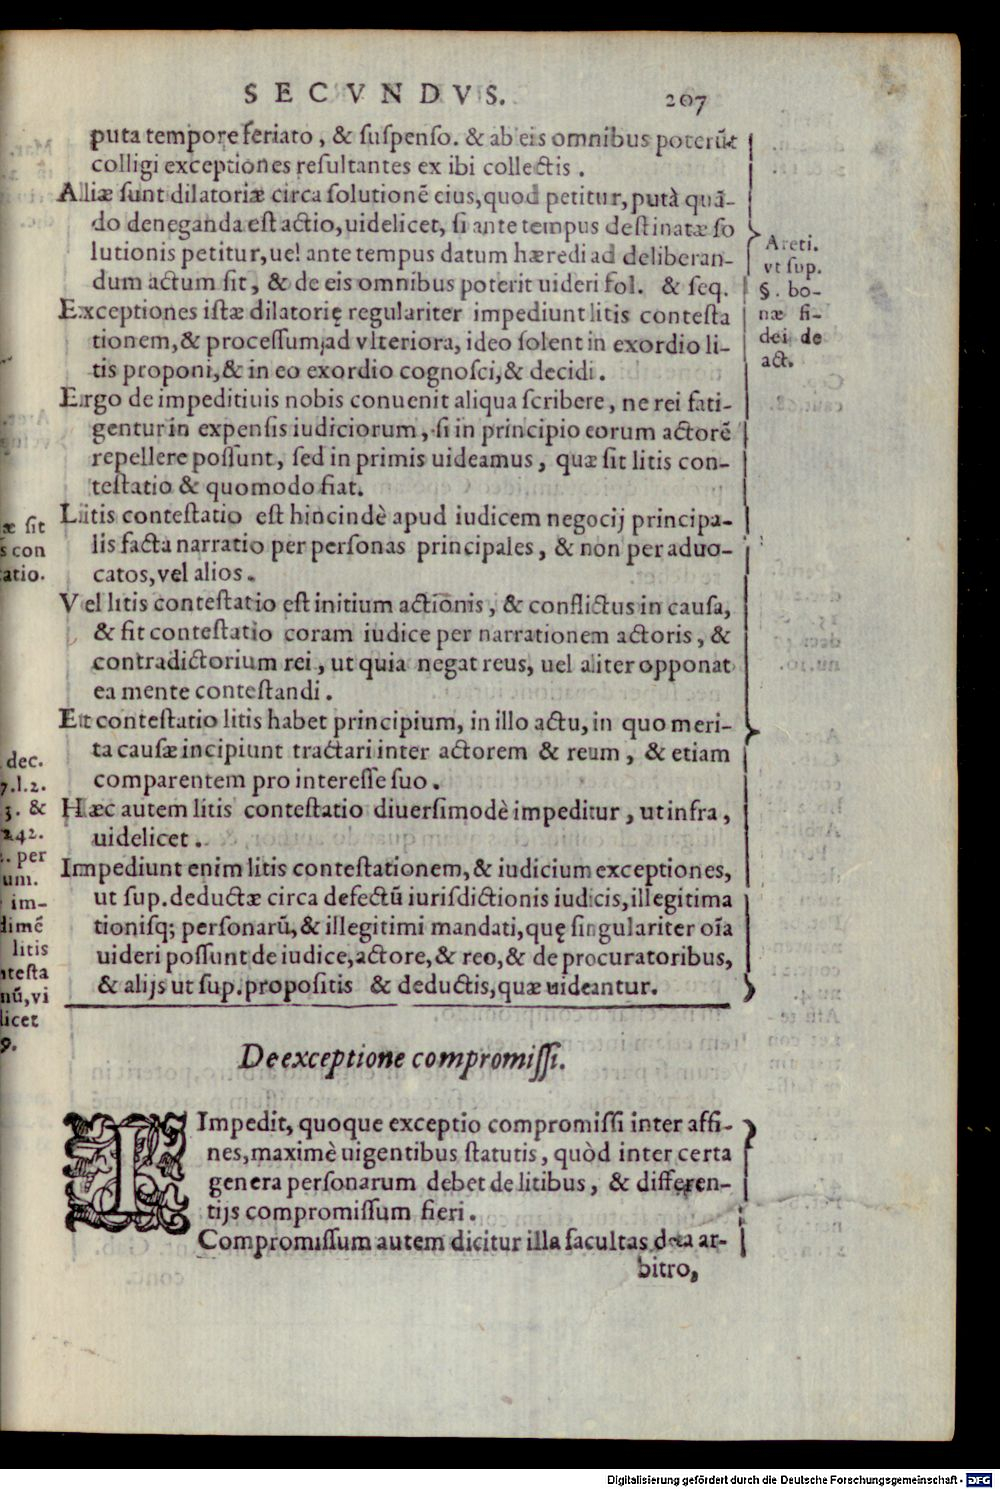 SECVNDVS. 207
puta tempore feriato, & suspenso. & ab eis omnibus poterũt
colligi exceptiones resultantes ex ibi collectis.
Aliæ sunt dilatoriæ circa solutionẽ eius, quod petitur, putà quã-
do deneganda est actio, uidelicet, si ante tempus destinatæ so
lutionis petitur, uel ante tempus datum hæredi ad deliberan-
dum actum sit, & de eis omnibus poterit uideri fol. & seq.
Exceptiones istæ dilatorię regulariter impediunt litis contesta
tionem, & processum, ad vlteriora, ideo solent in exordio li-
tis proponi, & in eo exordio cognosci, & decidi.
Ergo de impeditiuis nobis conuenit aliqua scribere, ne rei fati-
gentur in expensis iudiciorum, si in principio eorum actorẽ
repellere possunt, sed in primis uideamus, quæ sit litis con-
testatio & quomodo fiat.
Litis contestatio est hincindè apud iudicem negocij principa-
lis facta narratio per personas principales, & non per aduo-
catos, vel alios.
Vel litis contestatio est initium actionis, & conflictus in causa,
& fit contestatio coram iudice per narrationem actoris, &
contradictorium rei, ut quia negat reus, uel aliter opponat
ea mente contestandi.
Et contestatio litis habet principium, in illo actu, in quo meri-
ta causæ incipiunt tractari inter actorem & reum, & etiam
comparentem pro interesse suo.
Hæc autem litis contestatio diuersimodè impeditur, ut infra,
uidelicet.
Impediunt enim litis contestationem, & iudicium exceptiones,
ut sup. deductæ circa defectũ iurisdictionis iudicis, illegitima
tionisq; personarũ, & illegitimi mandati, quę singulariter oĩa
uideri possunt de iudice, actore, & reo, & de procuratoribus,
& alijs ut sup. propositis & deductis, quæ uideantur.
Areti.
vt sup.
§. bo-
næ fi-
dei de
act.
De exceptione compromissi.
IImpedit, quoque exceptio compromissi inter affi-
nes, maximè uigentibus statutis, quòd inter certa
genera personarum debet de litibus, & differen-
tijs compromissum fieri.
Compromissum autem dicitur illa facultas data ar-
bitro,
æ sit
s con
atio.
dec.
7.l.2.
3. &
242.
. per
um.
im-
dimẽ
litis
ntesta
nũ, vi
licet
9.
Digitalisierung gefördert durch die Deutsche Forschungsgemeinschaft - DFG